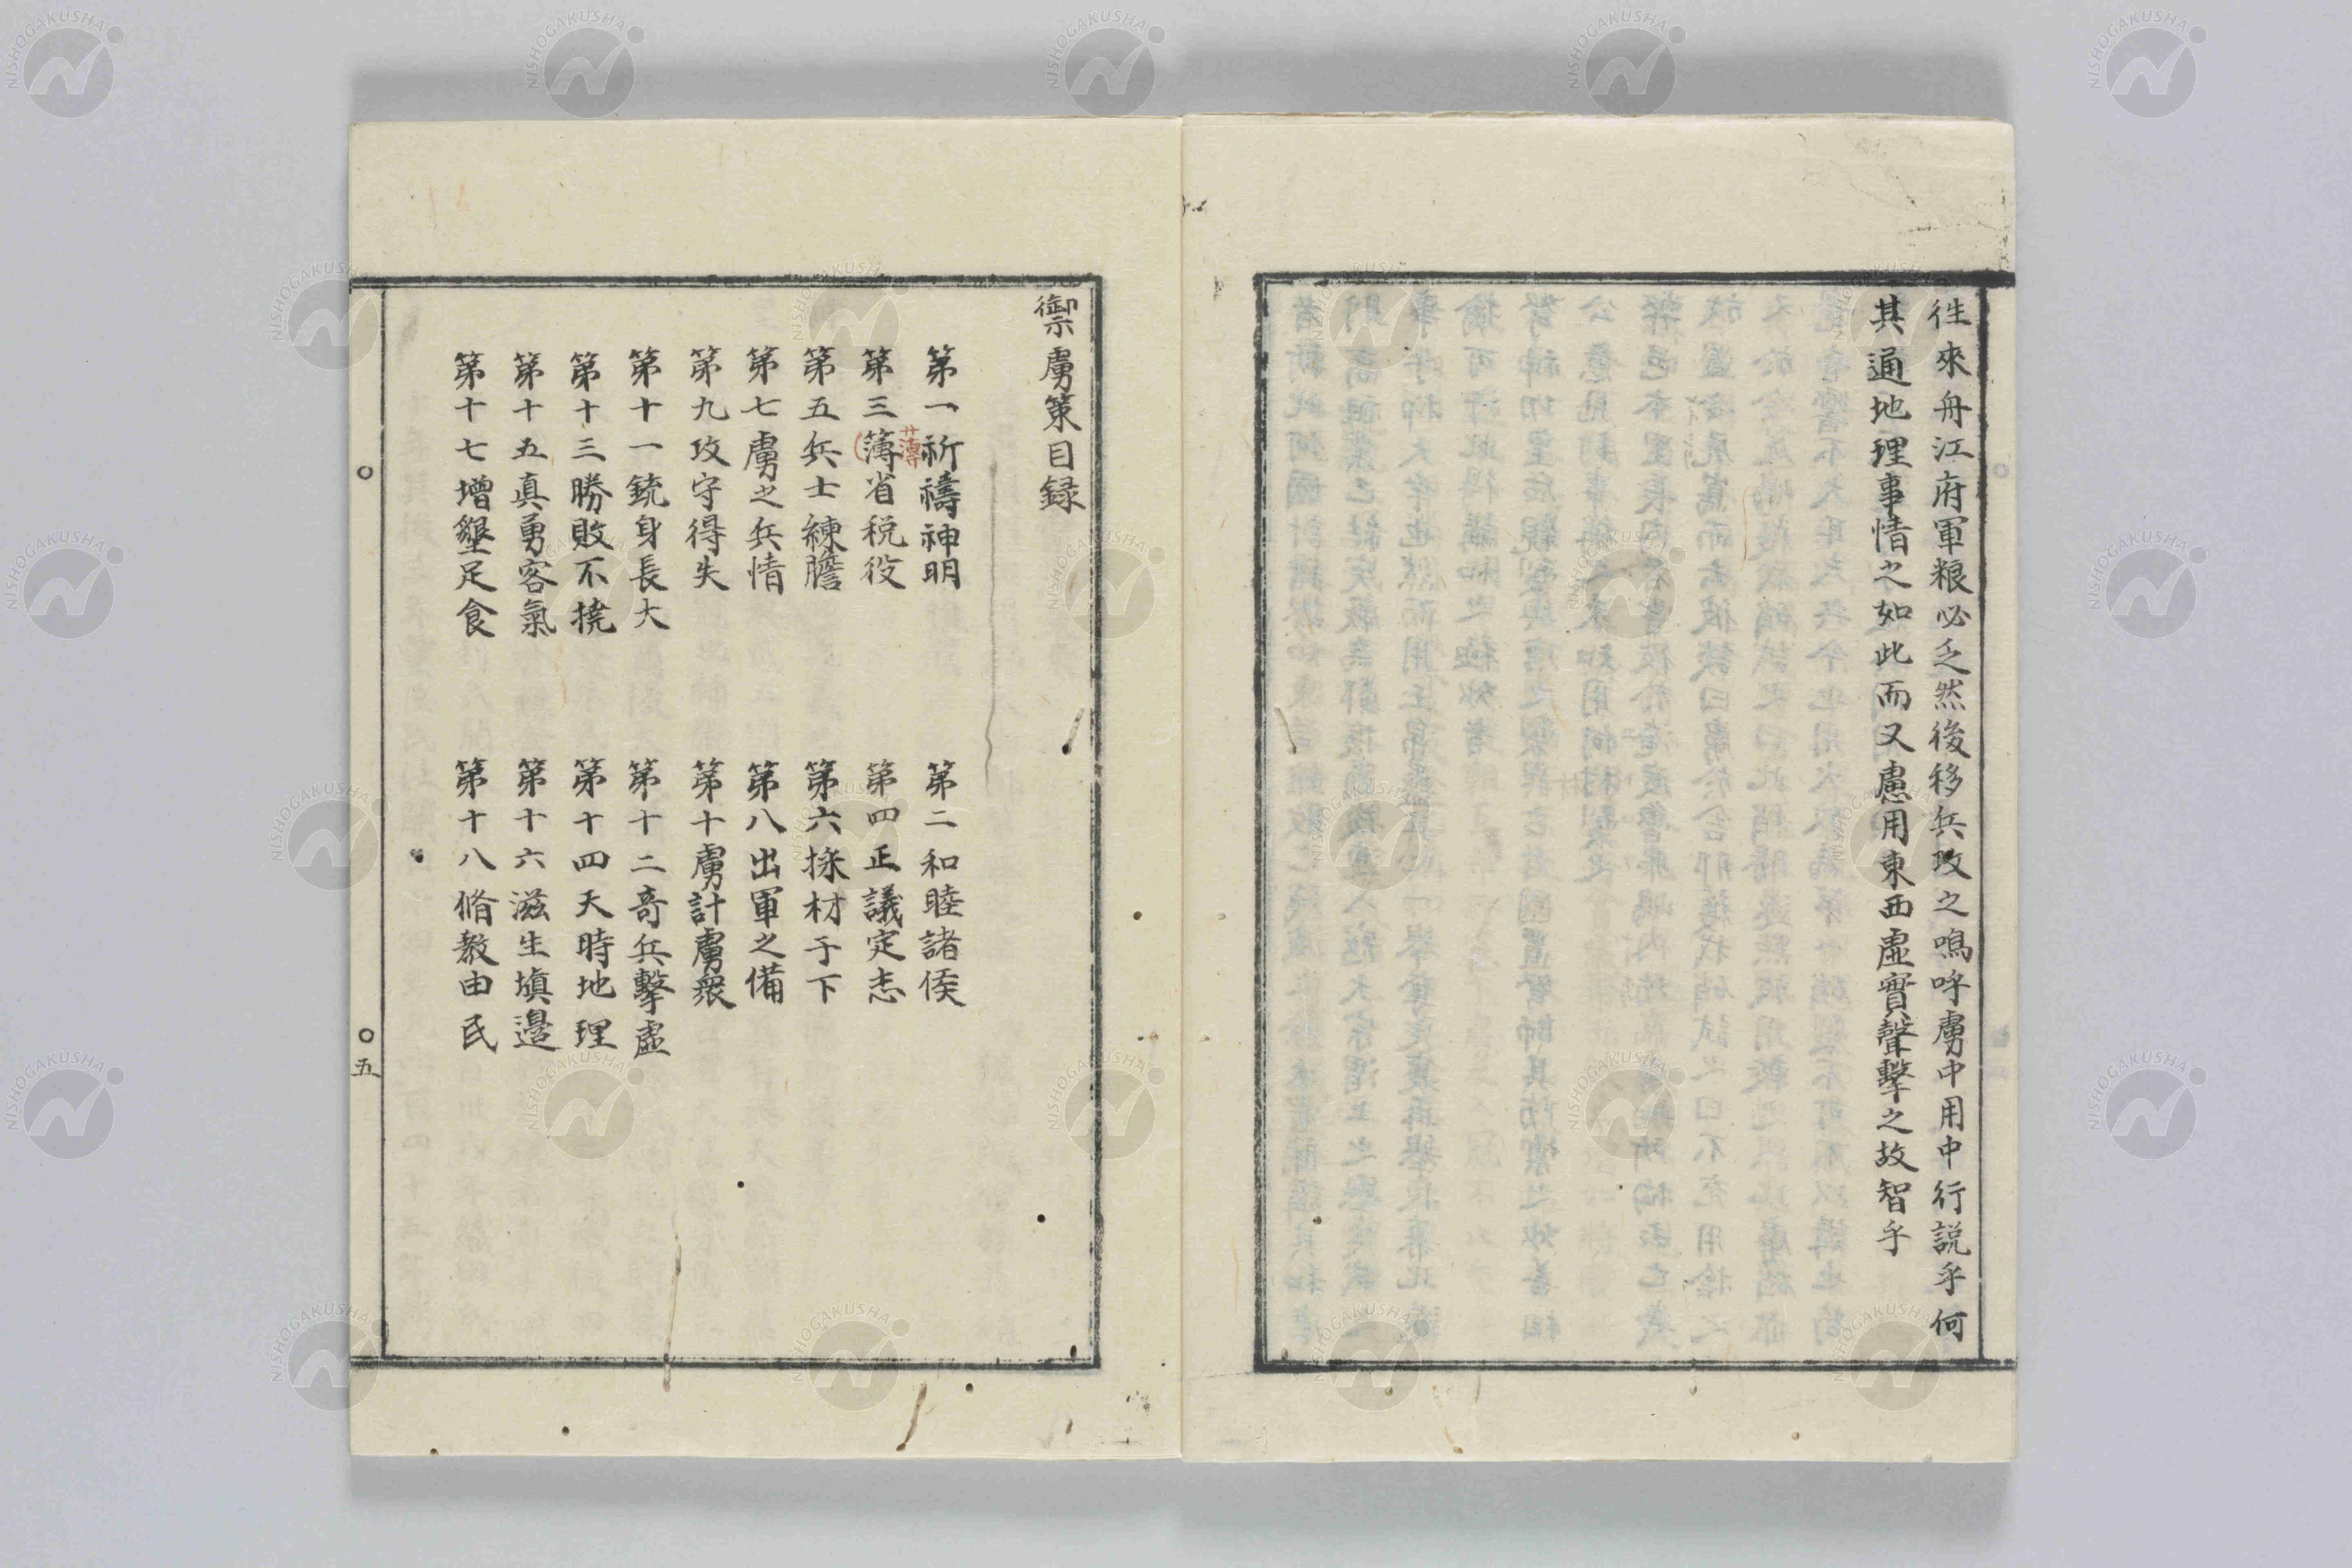 徃來舟江府軍粮必乏然後移兵攻之鳴呼虜中用中行説乎何
其通地理事情之如此而又慮用東西虛實聲擊之故智乎
禦虜策目録
第一祈禱神明
第二和睦諸侯
第三簿省税役
薄
第四正議定志
第五兵士練膽
第六採材于下
第七虜之兵情
第八出軍之備
第九攻守得失
第十虜計虜衆
第十一銃身長大
第十二奇兵擊虛
第十三勝敗不撓
第十四天時地理
第十五真勇客氣
第十六滋生塡邊
第十七增墾足食
第十八脩教由民
五